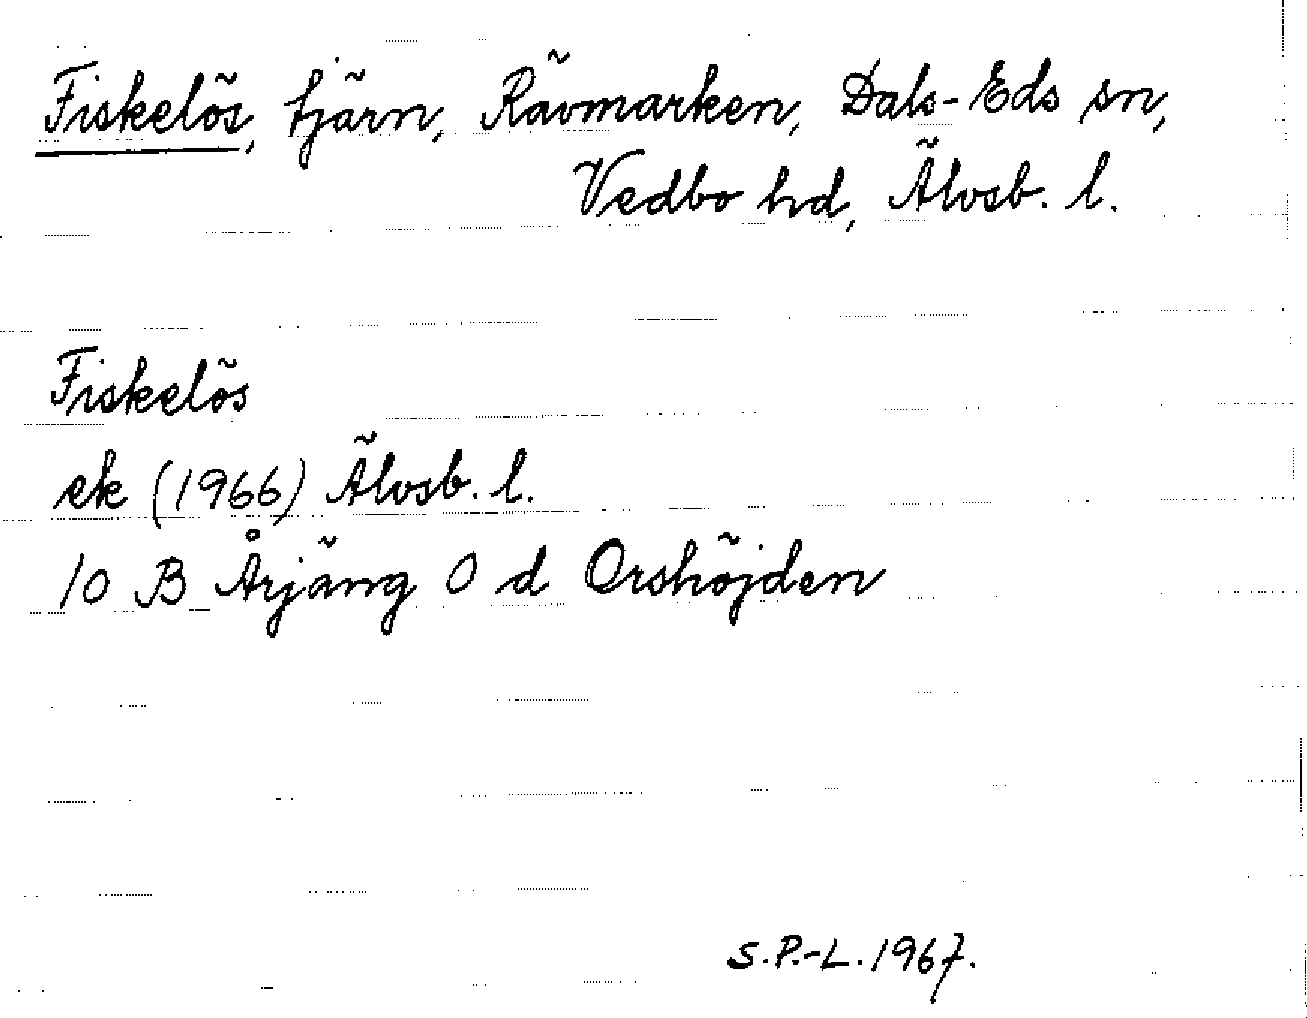 Fiskelös, tjärn, Rävmarken, Dals-Eds sn,
Vedbo hd, Älvsb. l.
Fiskelös
ek (1966) Älvsb. l.
10 B Årjäng 0 d Orshöjden
S.P.-L. 1967.